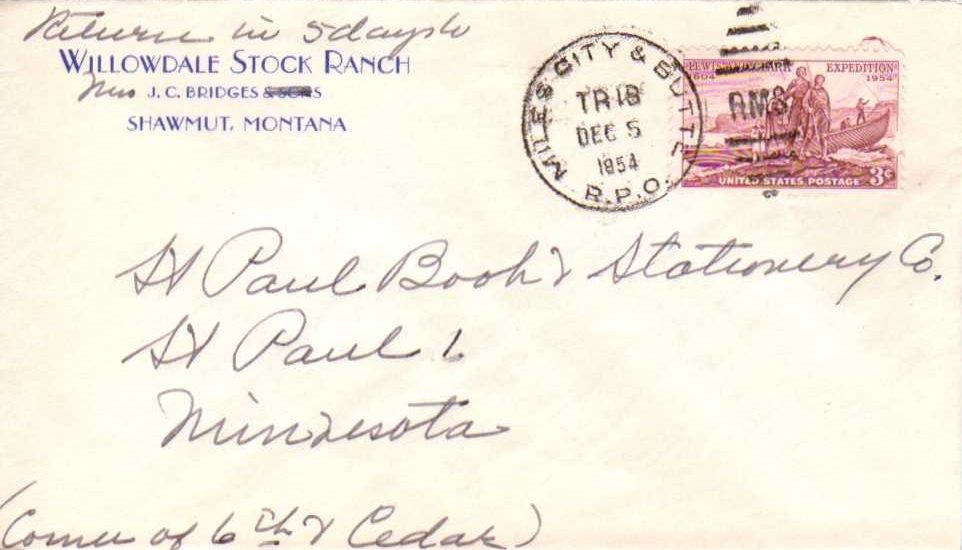 Return in 5 days to
WILLOWDALE STOCK RANCH
Mrs J. C. BRIDGES & SONS
SHAWMUT, MONTANA
MILES CITY & BUTTE
TR 18
DEC 5
1954
R.P.O.
RMS
LEWIS AND CLARK EXPEDITION
1804 1954
UNITED STATES POSTAGE 3¢
St Paul Book & Stationery Co.
St Paul 1.
Minnesota
(Corner of 6th & Cedar)